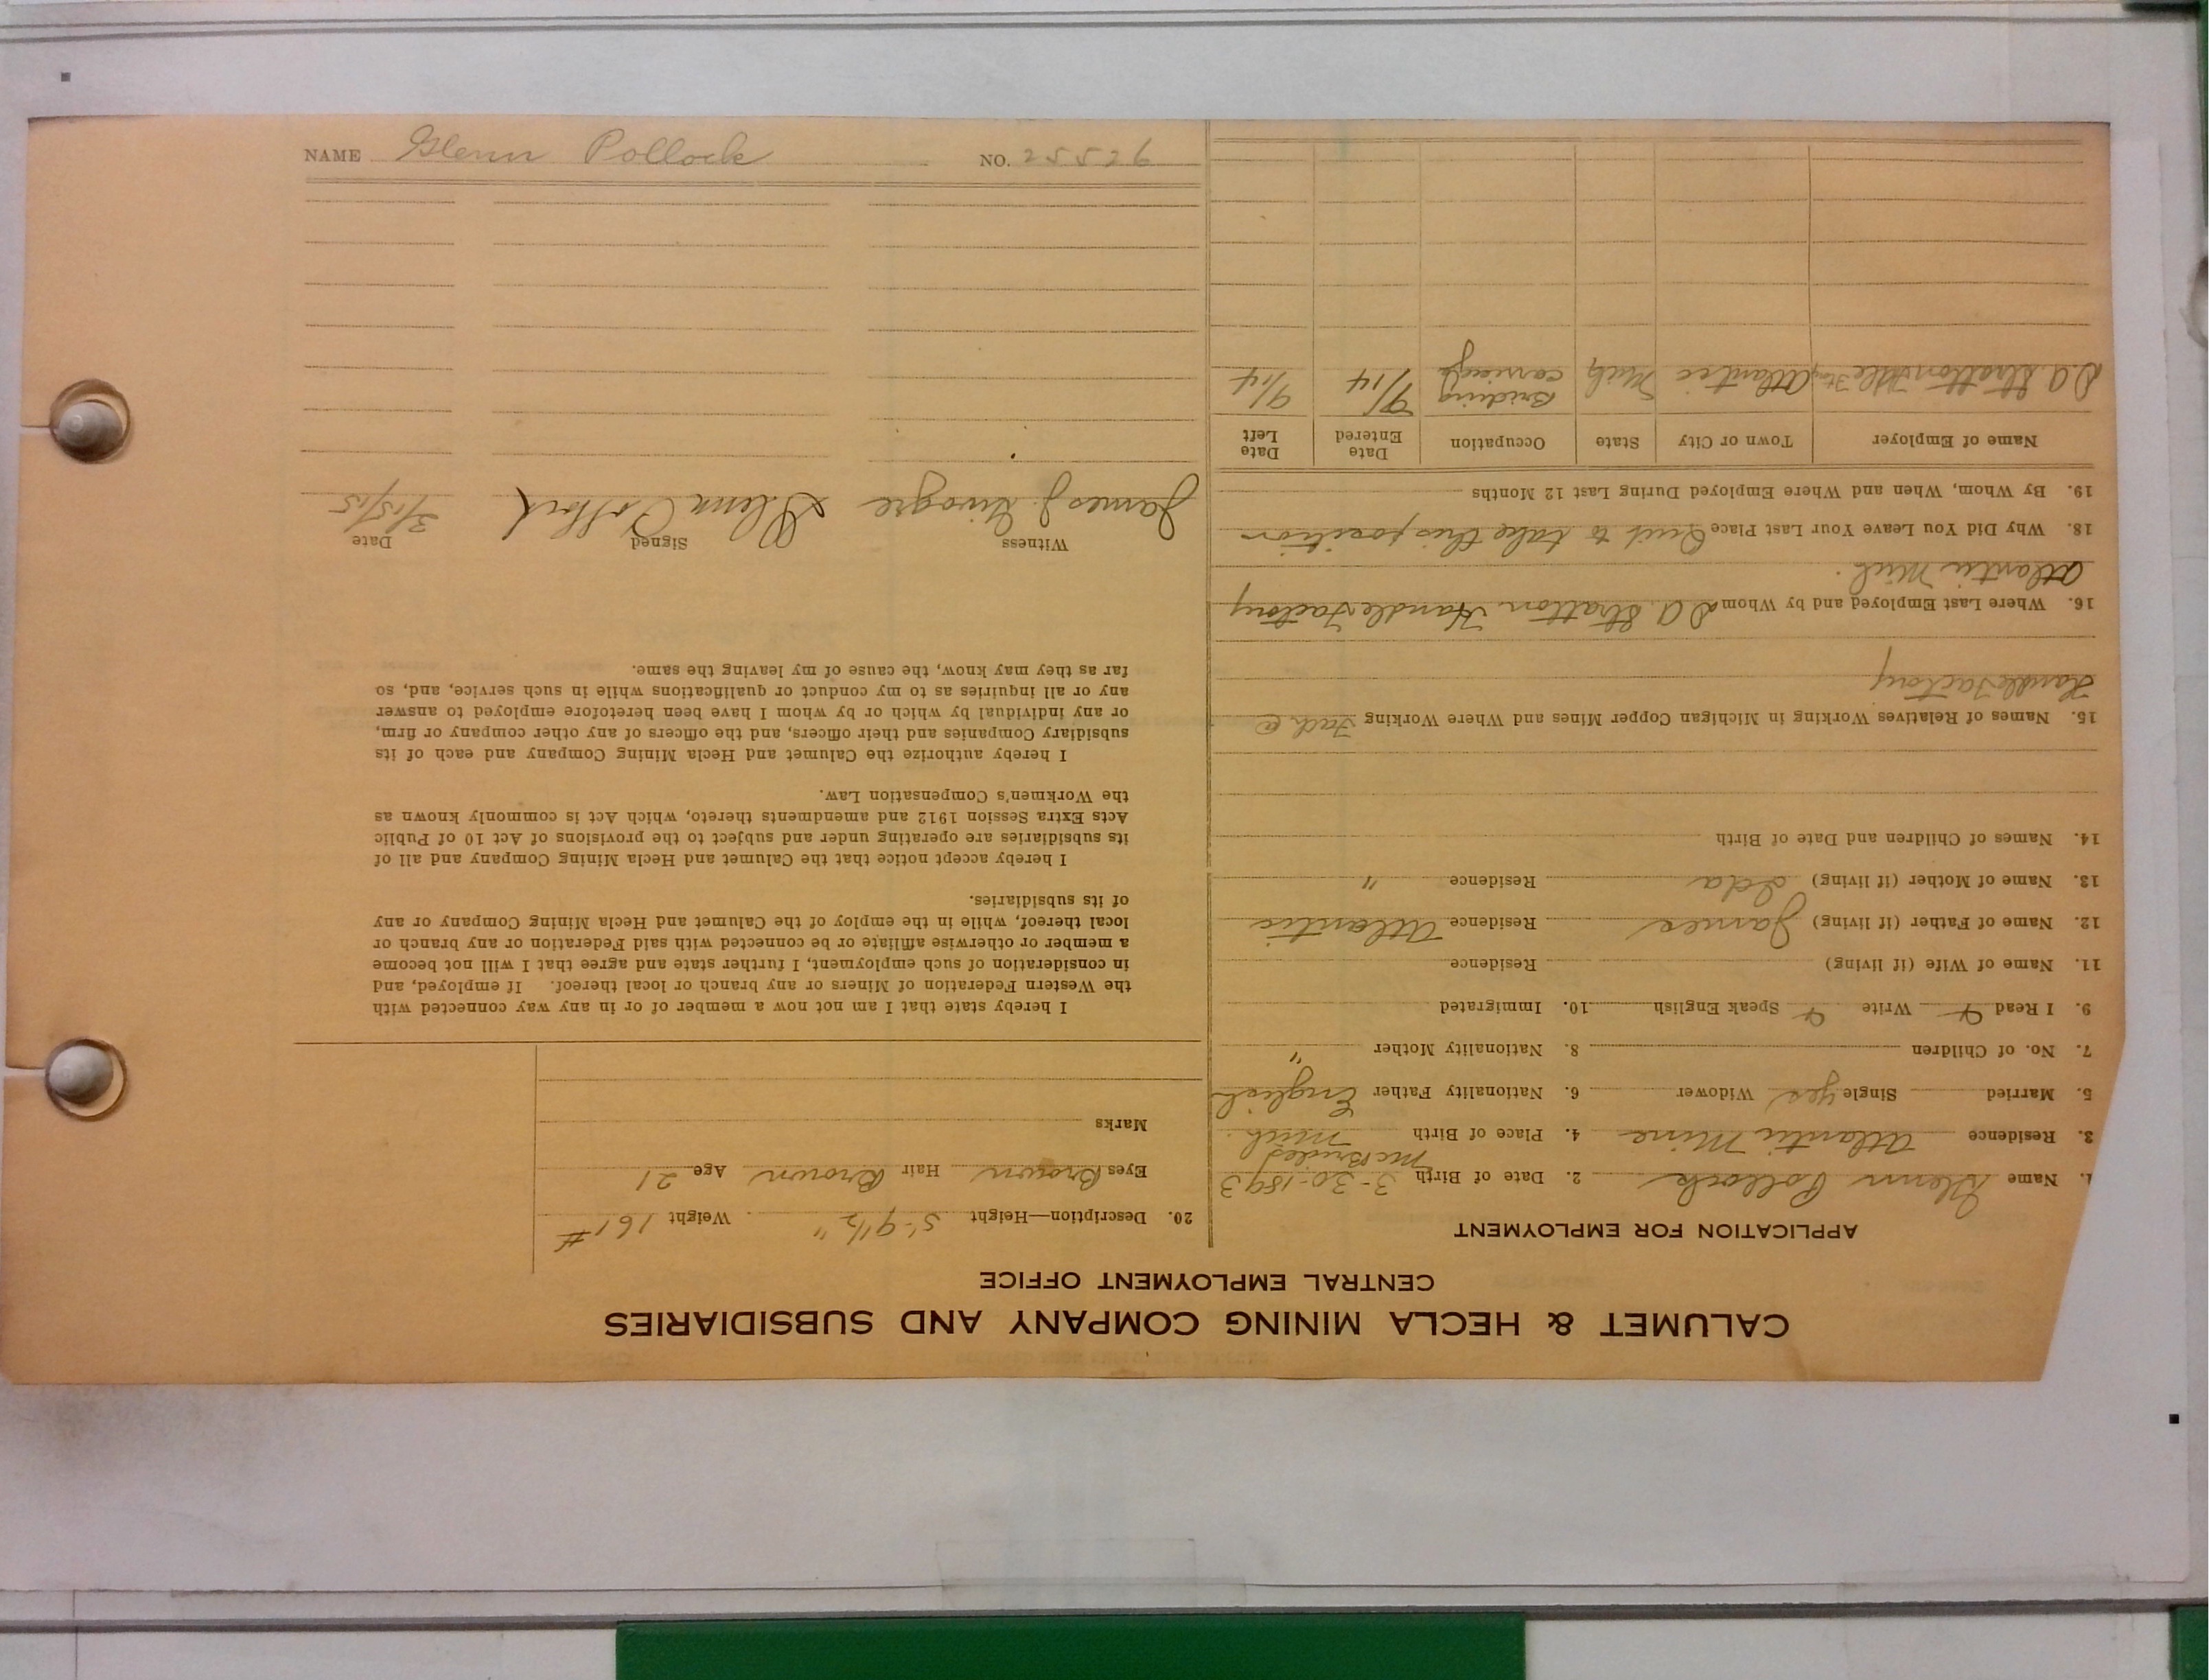 CALUMET & HECLA MINING COMPANY AND SUBSIDIARIES
CENTRAL EMPLOYMENT OFFICE
APPLICATION FOR EMPLOYMENT
1. Name Glenn Pollock 2. Date of Birth 3-30-1893
McBrides
3. Residence Atlantic Mine 4. Place of Birth Mich.
5. Married Single yes Widower 6. Nationality Father English
7. No. of Children 8. Nationality Mother "
9. I Read Write Speak English 10. Immigrated
11. Name of Wife (if living) Residence
12. Name of Father (if living) James Residence Atlantic
13. Name of Mother (if living) Ida Residence "
14. Names of Children and Date of Birth
15. Names of Relatives Working in Michigan Copper Mines and Where Working Fad @
Handle Factory
16. Where Last Employed and by Whom D A Stratton Handle Factory
Atlantic Mich.
18. Why Did You Leave Your Last Place Quit to take this position
19. By Whom, When and Where Employed During Last 12 Months
Name of Employer Town or City State Occupation Date Entered Date Left
D A Stratton Hdle Atlantic Mich carrying 9/14 9/14
20. Description—Height 5'-9 1/2" Weight 161#
Eyes Brown Hair Brown Age 21
Marks
I hereby state that I am not now a member of or in any way connected with
the Western Federation of Miners or any branch or local thereof. If employed, and
in consideration of such employment, I further state and agree that I will not become
a member or otherwise affiliate or be connected with said Federation or any branch or
local thereof, while in the employ of the Calumet and Hecla Mining Company or any
of its subsidiaries.
I hereby accept notice that the Calumet and Hecla Mining Company and all of
its subsidiaries are operating under and subject to the provisions of Act 10 of Public
Acts Extra Session 1912 and amendments thereto, which Act is commonly known as
the Workmen's Compensation Law.
I hereby authorize the Calumet and Hecla Mining Company and each of its
subsidiary Companies and their officers, and the officers of any other company or firm,
or any individual by which or by whom I have been heretofore employed to answer
any or all inquiries as to my conduct or qualifications while in such service, and, so
far as they may know, the cause of my leaving the same.
Witness Signed Date
James J. Glenn Pollock 3/15/15
NAME Glenn Pollock NO. 25526